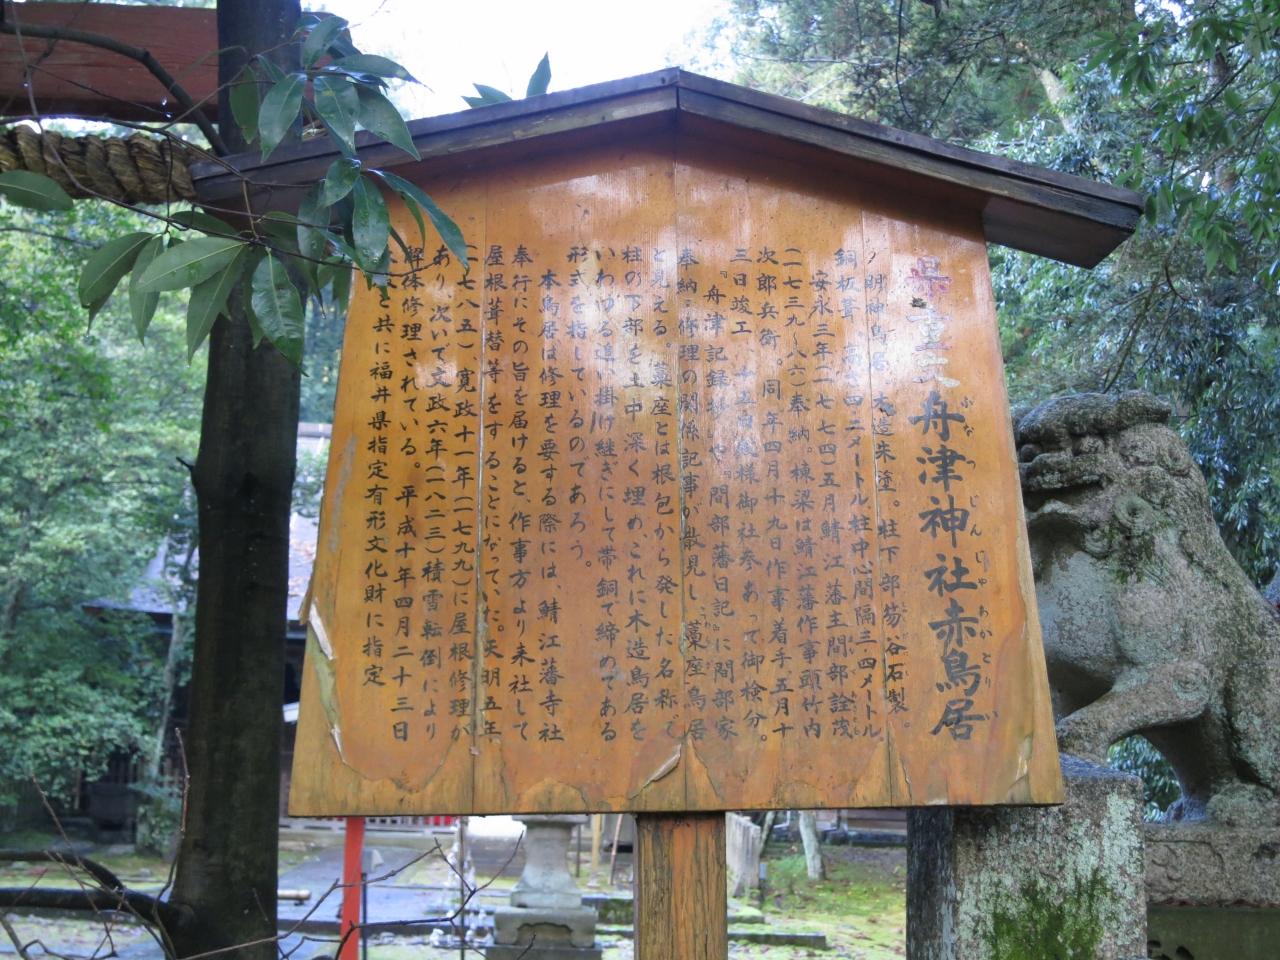 県重文 舟津神社赤鳥居
ふなつじんじゃあかとりい
明神鳥居、木造朱塗。柱下部笏谷石製。
銅板葺、高さ四二メートル柱中心間隔三・四メートル
安永三年(一七七四)五月鯖江藩主間部詮茂
(一七三九～八六)奉納。棟梁は鯖江藩作事頭竹内
次郎兵衛。同年四月十九日作事着手五月十
三日竣工、十五日殿様御社参あって御検分。
『舟津記録抄』や『間部藩日記』に間部家
奉納・修理の関係記事が散見し、藁座鳥居
と見える。藁座とは根包から発した名称で
柱の下部を土中深く埋めこれに木造鳥居を
いわゆる違い掛け継ぎにして帯銅で締めてある
形式を指しているのであろう。
本鳥居は修理を要する際には、鯖江藩寺社
奉行にその旨を届けると、作事方より来社して
屋根葺替等をすることになっていた。天明五年
(一七八五)、寛政十一年(一七九九)に屋根修理が
あり、次いで文政六年(一八二三)積雪転倒により
解体修理されている。平成十年四月二十三日
と共に福井県指定有形文化財に指定